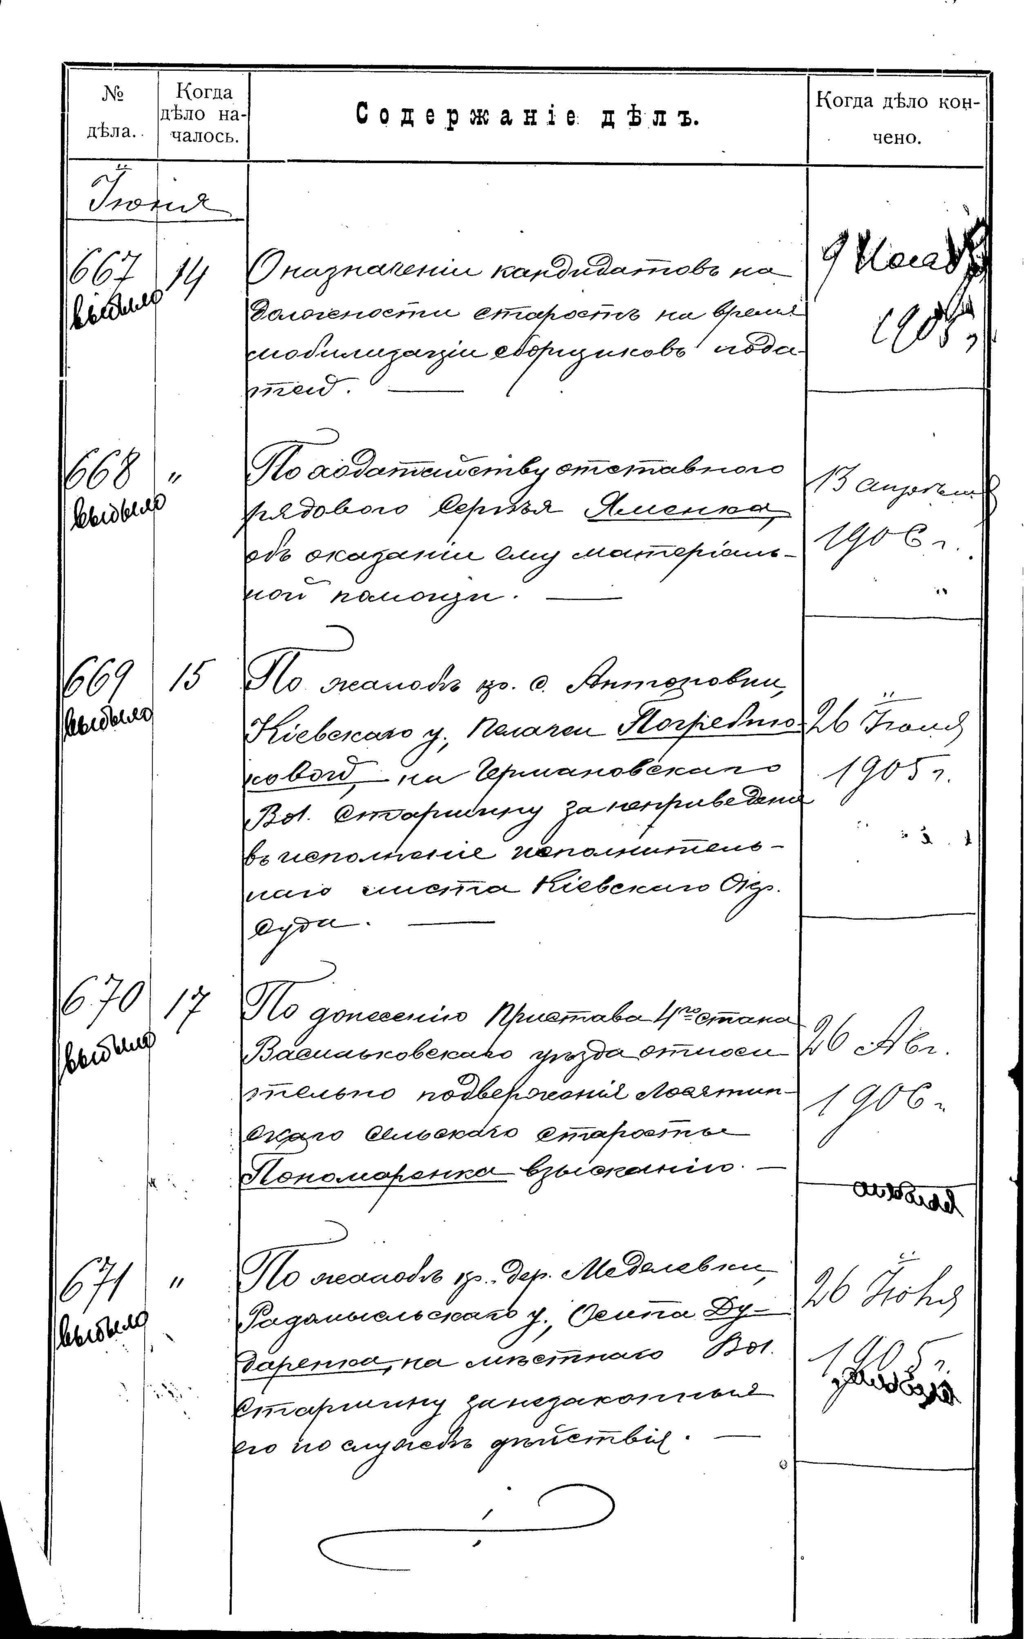 №
дѣла.
Когда
дѣло на-
чалось.
Содержаніе дѣлъ.
Когда дѣло кон-
чено.
Іюня
667
выбыло
14
О назначеніи кандидатовъ на
должности старостъ на время
мобилизаціи сборщиковъ пода-
тей.
9
1905 г.
668
выбыло
"
По ходатайству отставного
рядового Сергѣя Яменка,
объ оказаніи ему матеріаль-
ной помощи.
13 апрѣля
1906 г.
669
выбыло
15
По жалобѣ кр. с. Антоновки,
Кіевскаго у., Пелагеи Погребню-
ковой, на Германовскаго
Вол. Старшину за неприведеніе
въ исполненіе исполнитель-
наго листа Кіевскаго Окр.
Суда.
26 Іюня
1905 г.
670
выбыло
17
По донесенію Пристава 4го стана
Васильковскаго уѣзда относи-
тельно подверженія Лосятин-
скаго сельскаго старосты
Пономаренка взысканію.
26 Авг.
1906 г.
выбыло
671
выбыло
"
По жалобѣ кр. дер. Меделевки,
Радомысльскаго у., Осипа Ду-
даренка, на мѣстнаго Вол.
Старшину за незаконныя
его по службѣ дѣйствія.
26 Іюня
1905 г.
выбыло